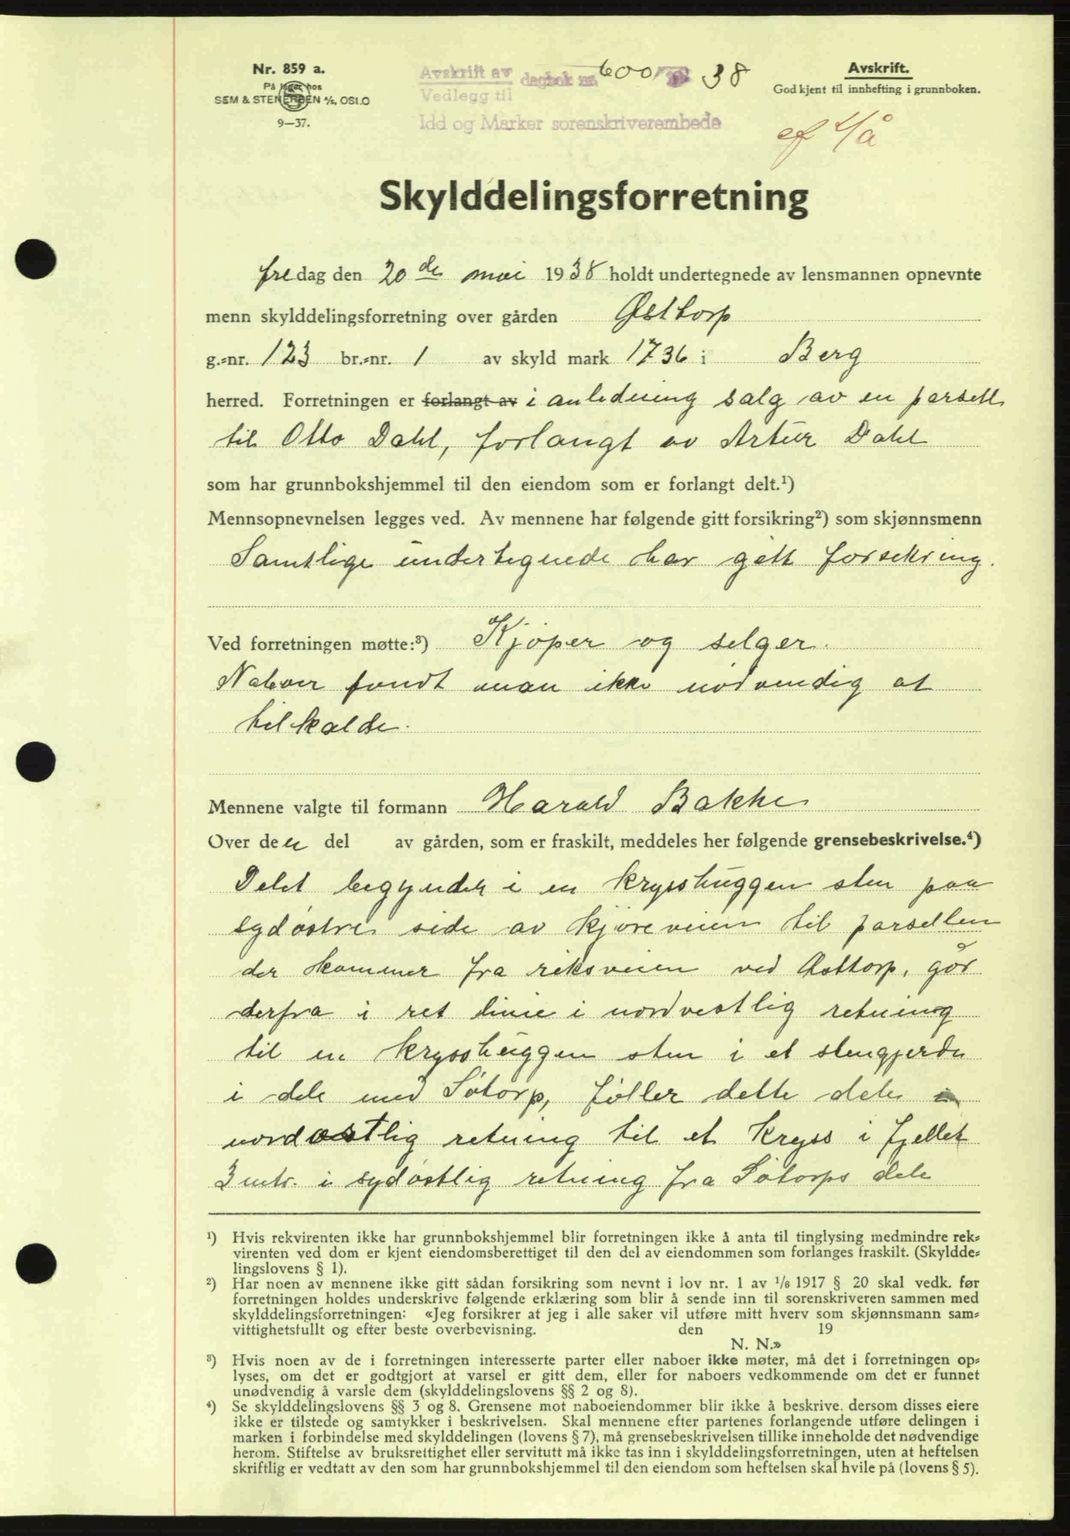 Nr. 859 a.
På lager hos
SEM & STENERSEN A/S, OSLO
9—37.
Avskrift av dagbok nr. 600 38
Vedlegg til
Idd og Marker sorenskriverembede
Avskrift.
God kjent til innhefting i grunnboken.
Skylddelingsforretning
fredag den 20de mai 1938 holdt undertegnede av lensmannen opnevnte
menn skylddelingsforretning over gården Østtorp
g.-nr. 123 br.-nr. 1 av skyld mark 1736 i Berg
herred. Forretningen er forlangt av i anledning salg av en parsell
til Otto Dahl, forlangt av Artur Dahl
som har grunnbokshjemmel til den eiendom som er forlangt delt.¹)
Mennsopnevnelsen legges ved. Av mennene har følgende gitt forsikring²) som skjønnsmenn
Samtlige undertegnede har gitt forsikring.
Ved forretningen møtte:³) Kjøper og selger.
Naboer fandt man ikke nødvendig at
tilkalde.
Mennene valgte til formann Harald Bakke
Over den del av gården, som er fraskilt, meddeles her følgende grensebeskrivelse.⁴)
Delet begynder i en krysshuggen sten paa
sydøstre side av kjøreveien til parsellen
der kommer fra riksveien ved Østtorp, går
derfra i ret linie i nordvestlig retning
til en krysshuggen sten i et stengjerde
i dele med Søtorp, føller dette dele
nordøstlig retning til et kryss i fjellet
3 mtr. i sydøstlig retning fra Søtorps dele
¹) Hvis rekvirenten ikke har grunnbokshjemmel blir forretningen ikke å anta til tinglysing medmindre rek-
virenten ved dom er kjent eiendomsberettiget til den del av eiendommen som forlanges fraskilt. (Skyldde-
lingslovens § 1).
²) Har noen av mennene ikke gitt sådan forsikring som nevnt i lov nr. 1 av 1/6 1917 § 20 skal vedk. før
forretningen holdes underskrive følgende erklæring som blir å sende inn til sorenskriveren sammen med
skylddelingsforretningen: «Jeg forsikrer at jeg i alle saker vil utføre mitt hverv som skjønnsmann sam-
vittighetsfullt og efter beste overbevisning. den 19
N. N.»
³) Hvis noen av de i forretningen interesserte parter eller naboer ikke møter, må det i forretningen op-
lyses, om det er godtgjort at varsel er gitt dem, eller for naboers vedkommende om det er funnet
unødvendig å varsle dem (skylddelingslovens §§ 2 og 8).
⁴) Se skylddelingslovens §§ 3 og 8. Grensene mot naboeiendommer blir ikke å beskrive, dersom disses eiere
ikke er tilstede og samtykker i beskrivelsen. Skal mennene efter partenes forlangende utføre delingen i
marken i forbindelse med skylddelingen (lovens § 7), må grensebeskrivelsen tillike inneholde det nødvendige
herom. Stiftelse av bruksrettighet eller servitutt må ikke tas inn i skylddelingsforretningen, uten at heftelsen
skriftlig er vedtatt av den som har grunnbokshjemmel til den eiendom som heftelsen skal hvile på (lovens § 5).